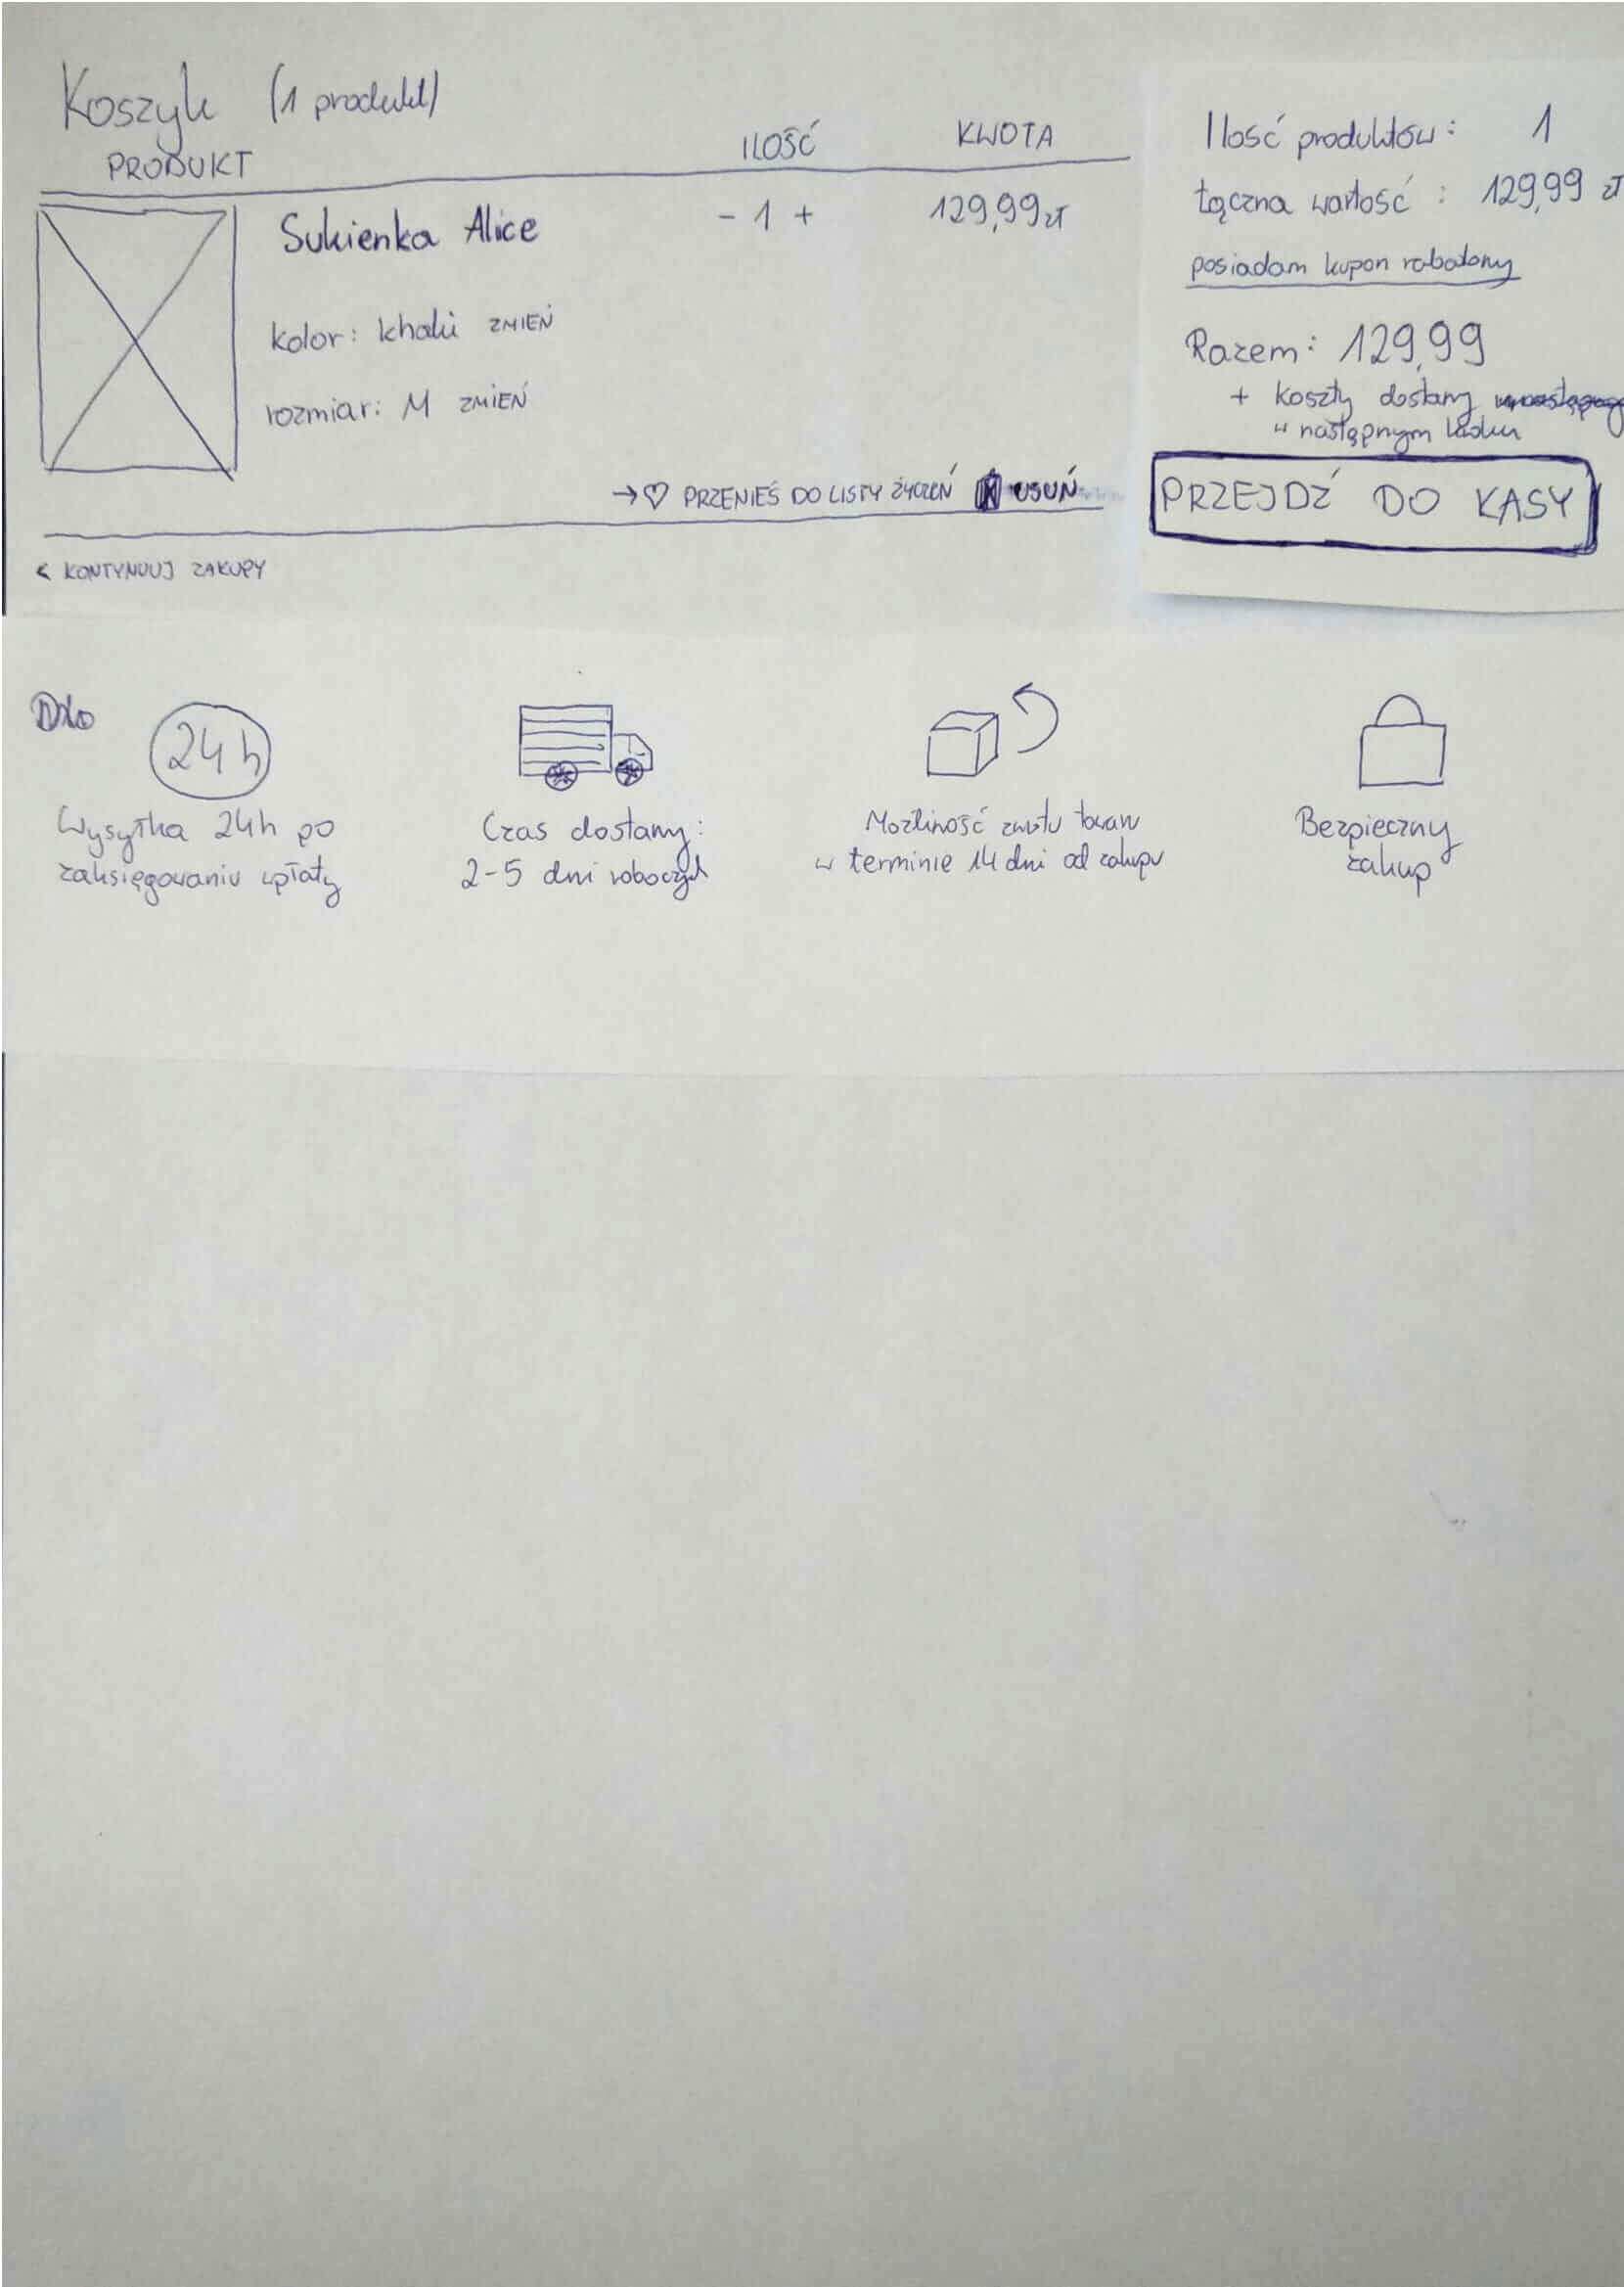 Koszyk (1 produkt)
PRODUKT ILOŚĆ KWOTA
Sukienka Alice - 1 + 129,99 zł
kolor: khaki ZMIEŃ
rozmiar: M ZMIEŃ
→♡ PRZENIEŚ DO LISTY ŻYCZEŃ USUŃ
< KONTYNUUJ ZAKUPY
Ilość produktów: 1
Łączna wartość: 129,99 zł
posiadam kupon rabatowy
Razem: 129,99
+ koszty dostawy
w następnym kroku
PRZEJDŹ DO KASY
24 h
Wysyłka 24h po
zaksięgowaniu wpłaty
Czas dostawy:
2-5 dni roboczych
Możliwość zwrotu towaru
w terminie 14 dni od zakupu
Bezpieczny
zakup